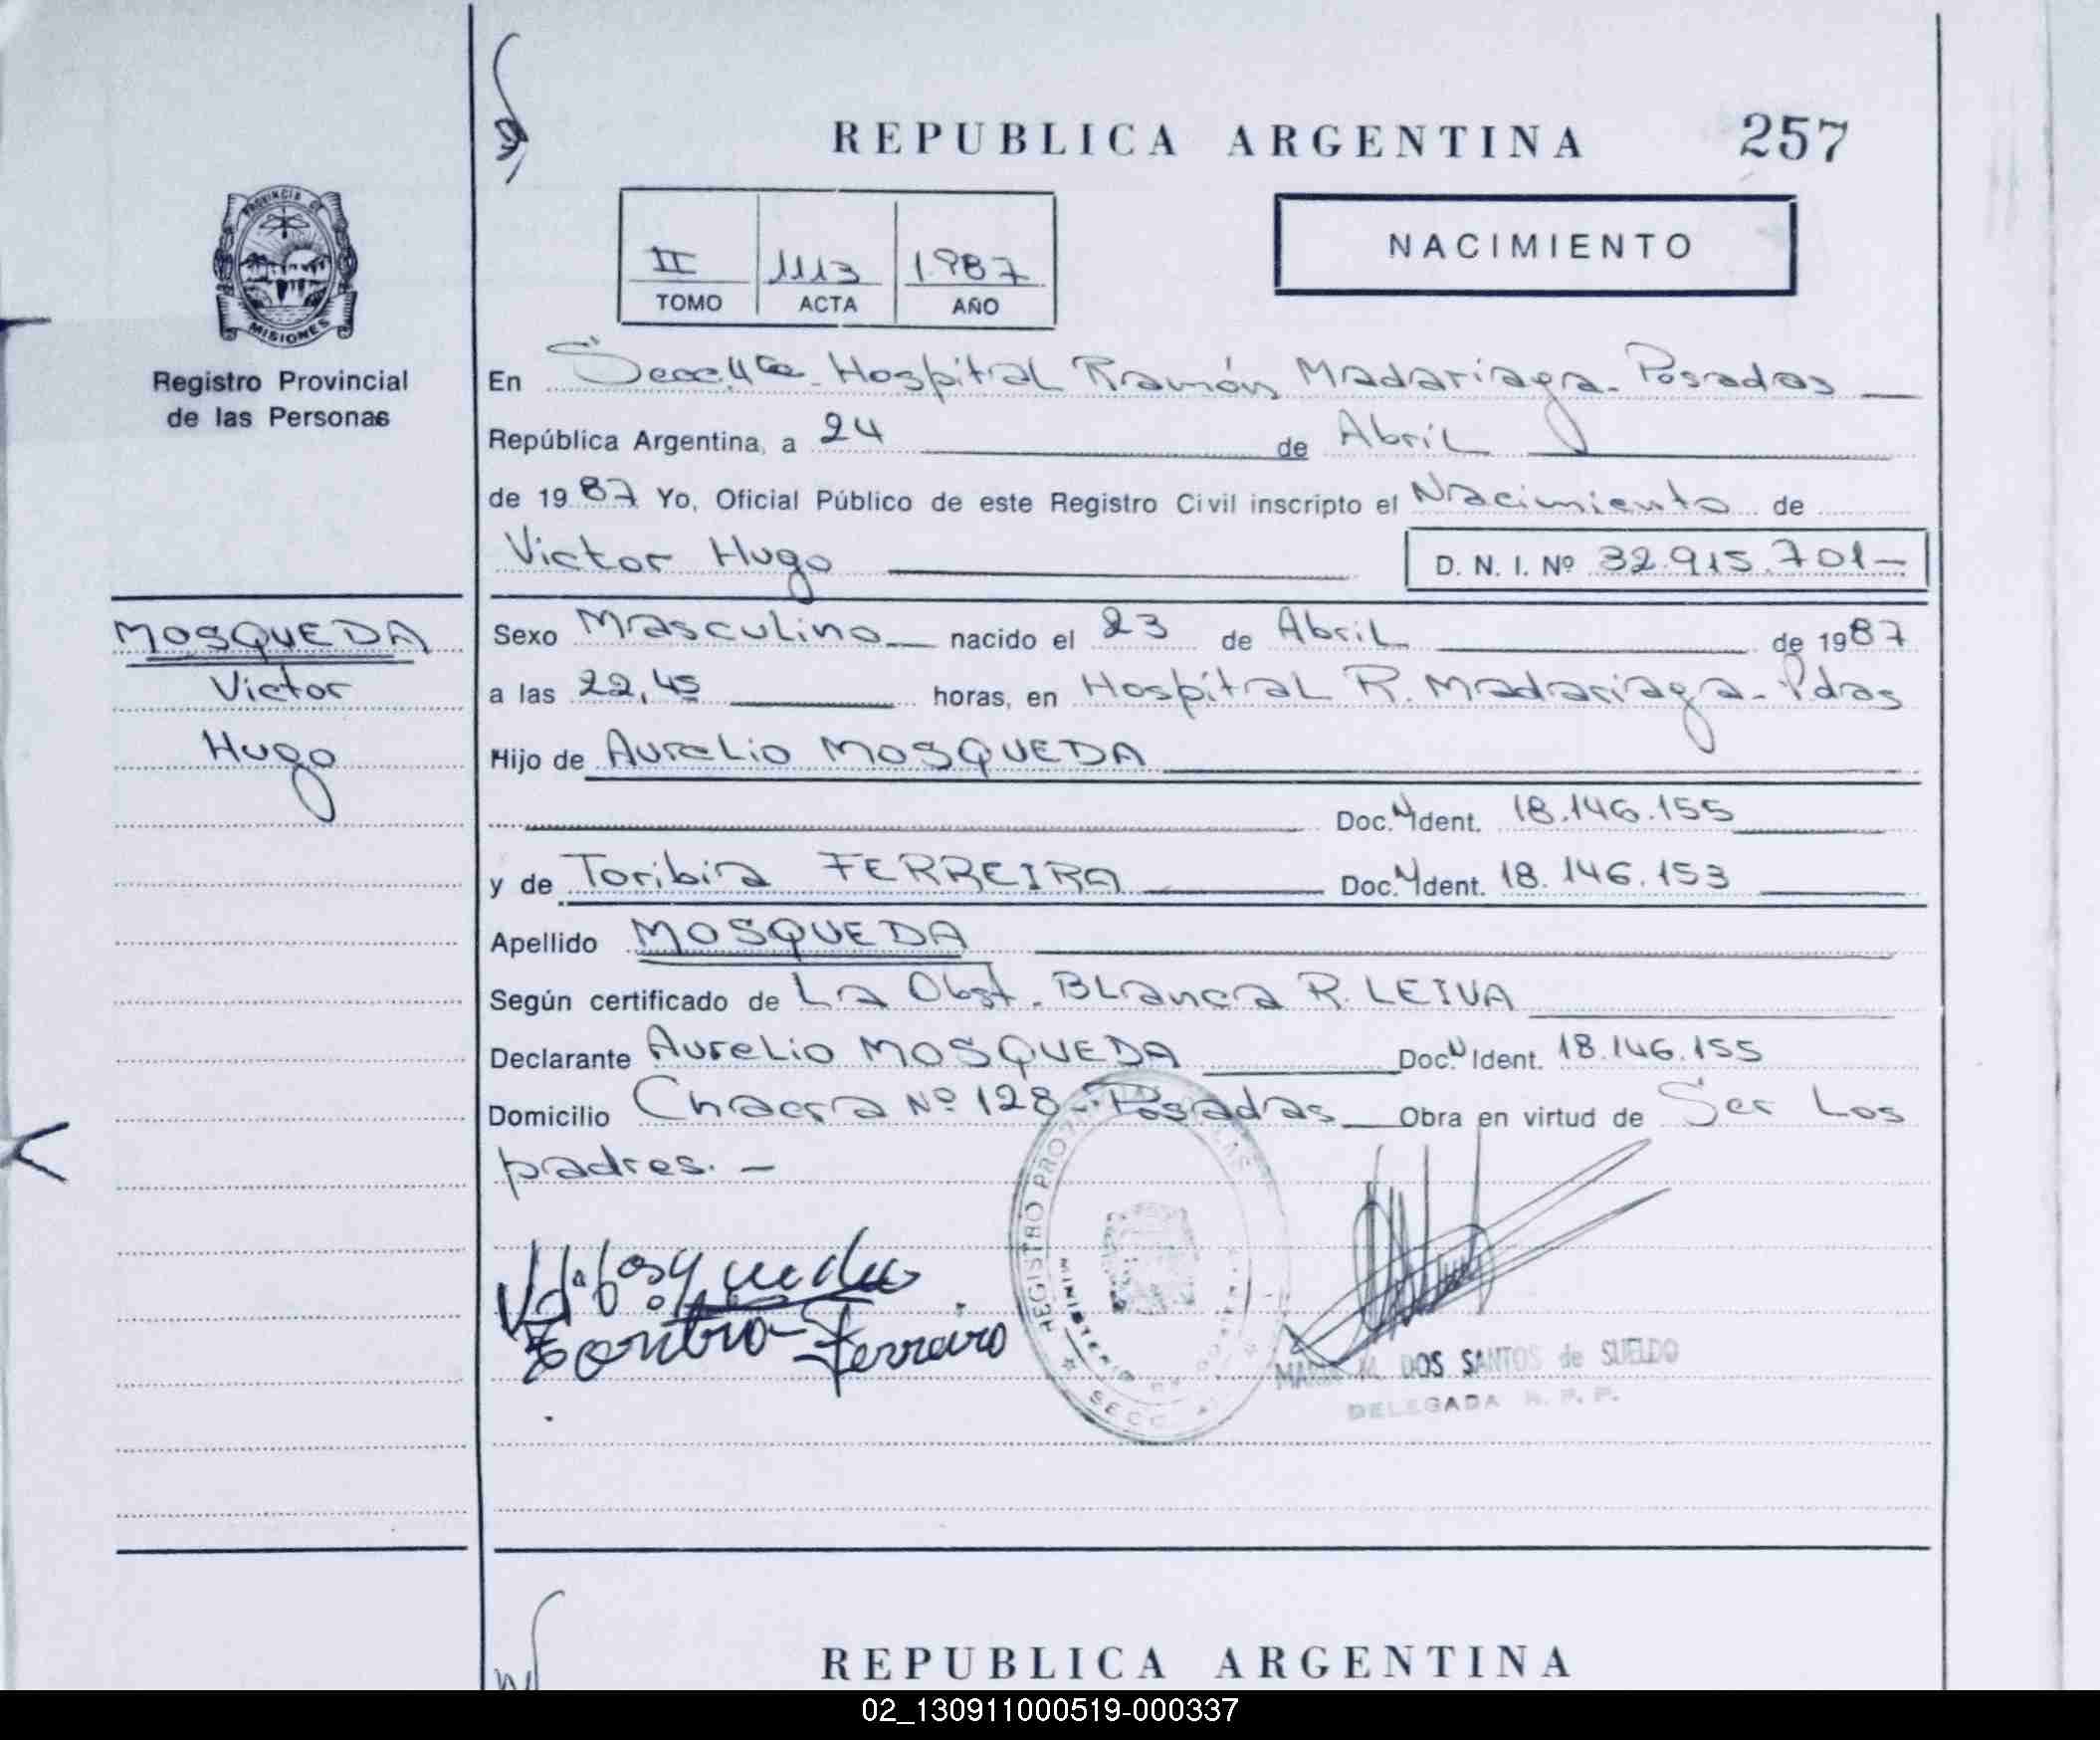 REPUBLICA ARGENTINA 257
PROVINCIA DE
MISIONES
Registro Provincial
de las Personas
II 1113 1.987
TOMO ACTA AÑO
NACIMIENTO
En Secc. 4ta - Hospital Ramón Madariaga - Posadas
República Argentina, a 24 de Abril
de 1987 Yo, Oficial Público de este Registro Civil inscripto el Nacimiento de
Victor Hugo D. N. I. Nº 32.915.701-
MOSQUEDA
Victor
Hugo
Sexo Masculino nacido el 23 de Abril de 1987
a las 22,45 horas, en Hospital R. Madariaga - Pdas
Hijo de Aurelio MOSQUEDA
Doc. N Ident. 18.146.155
y de Toribia FERREIRA Doc. N Ident. 18.146.153
Apellido MOSQUEDA
Según certificado de La Obst. Blanca R. LEIVA
Declarante Aurelio MOSQUEDA Doc. N Ident. 18.146.155
Domicilio Chacra Nº 128 - Posadas Obra en virtud de Ser Los
padres. -
REGISTRO
MINISTERIO
SECC
MARIA M. DOS SANTOS de SUELDO
DELEGADA R. P. P.
REPUBLICA ARGENTINA
02_130911000519-000337